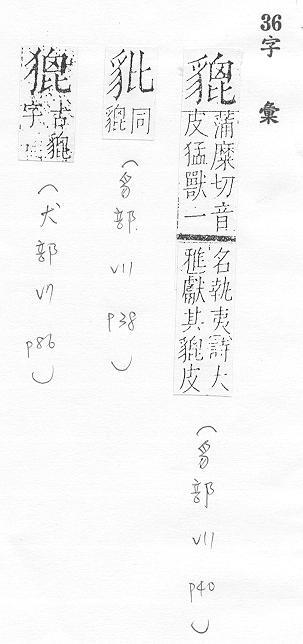 36字彙
貔
蒲糜切音
皮猛獸一
名執夷詩大
雅獻其貔皮
(豸部 V11 p40)
豼
同
貔
(豸部 V11 p38)
猽
古貔
字
(犬部 V7 p86)